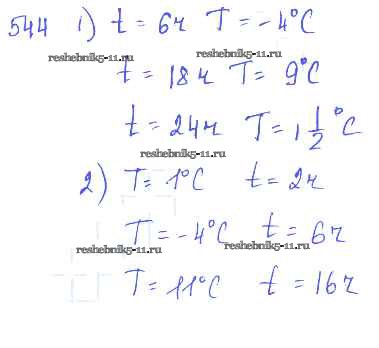 544 1) t = 6ч T = -4°C
reshebnik5-11.ru
reshebnik5-11.ru
t = 18ч T = 9°C
t = 24ч T = 1 1/2 °C
reshebnik5-11.ru
2) T = 1°C t = 2ч
T = -4°C t = 6ч
reshebnik5-11.ru
reshebnik5-11.ru
T = 11°C t = 16ч